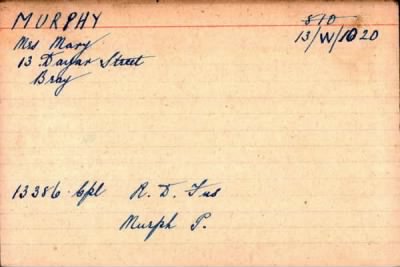 MURPHY
510
Mrs Mary
13/W/1020
13 Street
Bray
13386 Cpl R. D. Fus
Murph P.